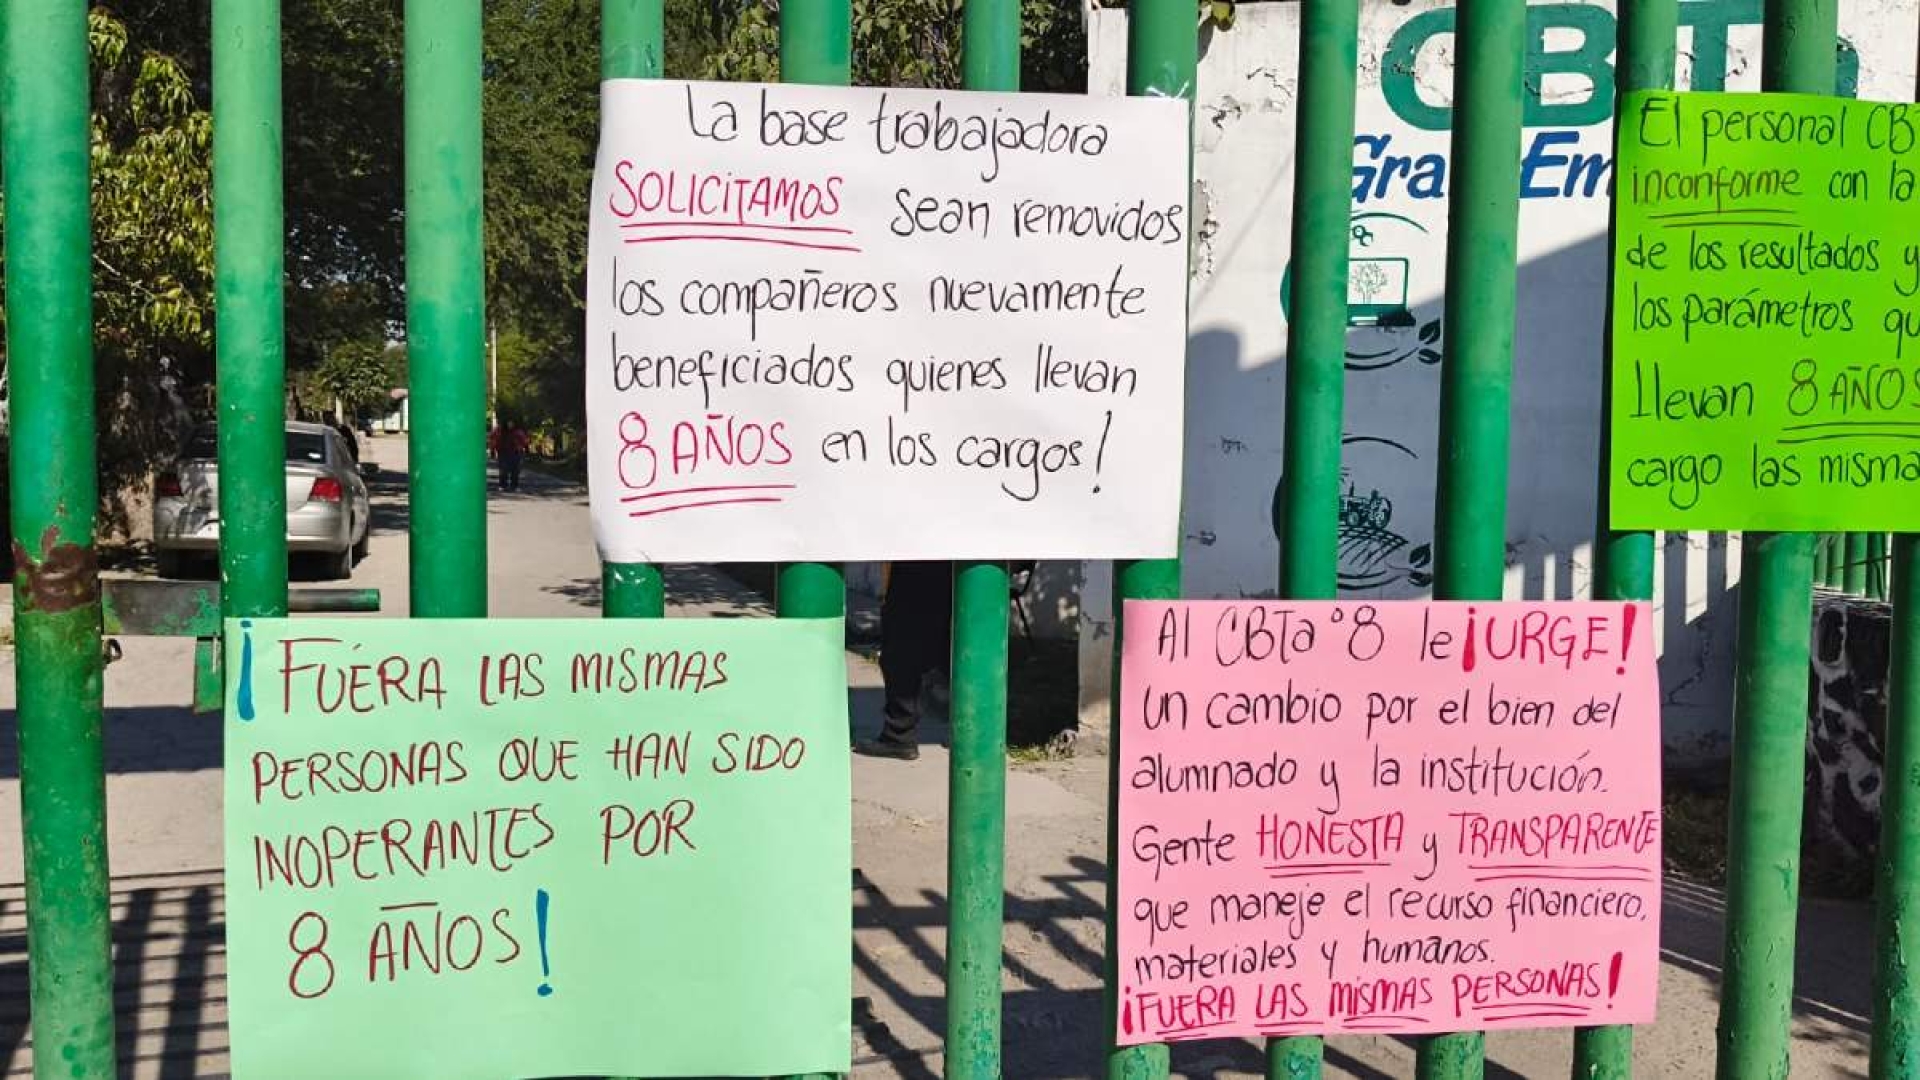 La base trabajadora
SOLICITAMOS sean removidos
los compañeros nuevamente
beneficiados quienes llevan
8 AÑOS en los cargos!
¡FUERA LAS MISMAS
PERSONAS QUE HAN SIDO
INOPERANTES POR
8 AÑOS!
Al CBTa °8 le ¡URGE!
un cambio por el bien del
alumnado y la institución.
Gente HONESTA y TRANSPARENTE
que maneje el recurso financiero,
materiales y humanos.
¡FUERA LAS MISMAS PERSONAS!
El personal
inconforme con la
de los resultados y
los parámetros
llevan 8 AÑOS
cargo las
CBT